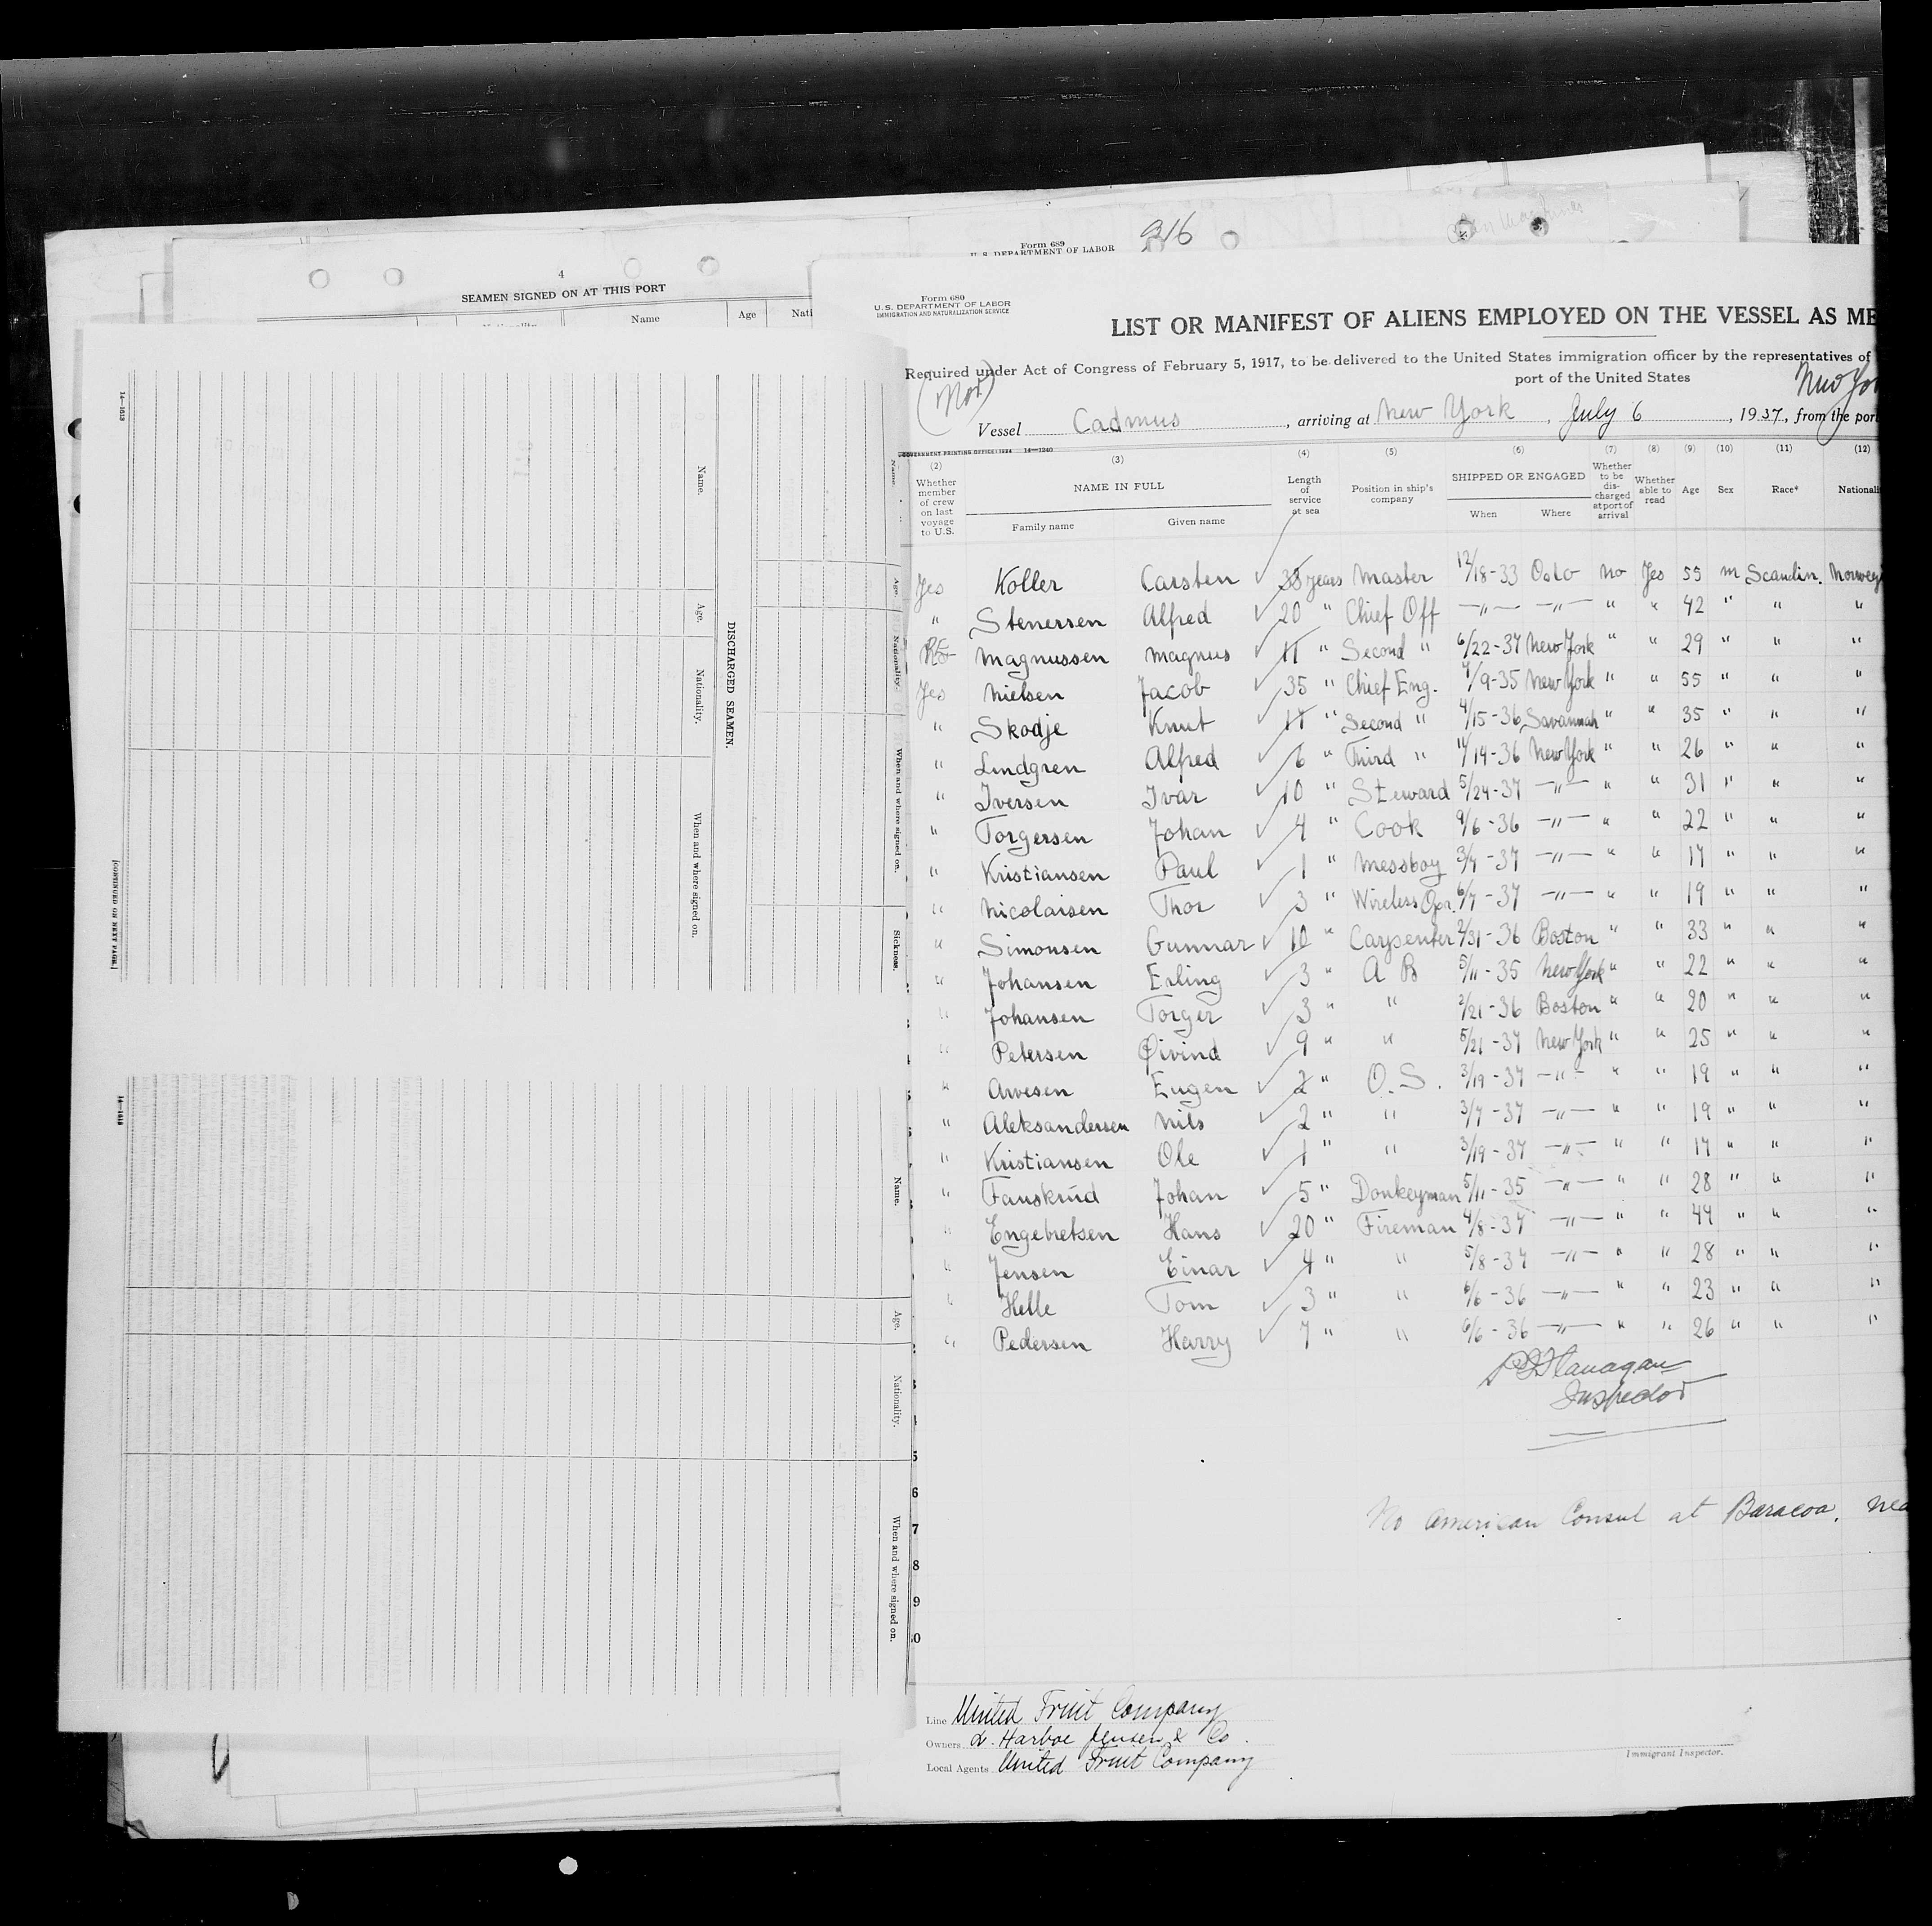 Form 689
U. S. DEPARTMENT OF LABOR
216
4
SEAMEN SIGNED ON AT THIS PORT
Name
Age
Nati
14—1613
Name.
Age.
Nationality.
When and where signed on.
DISCHARGED SEAMEN.
[CONTINUED ON NEXT PAGE.]
Name.
Age.
Nationality.
When and where signed on.
Sickness.
14—1613
Name.
Age.
Nationality.
When and where signed on.
Form 689
U. S. DEPARTMENT OF LABOR
IMMIGRATION AND NATURALIZATION SERVICE
LIST OR MANIFEST OF ALIENS EMPLOYED ON THE VESSEL AS ME
Required under Act of Congress of February 5, 1917, to be delivered to the United States immigration officer by the representatives of
port of the United States
(Nor)
New Yo
Vessel Cadmus, arriving at New York, July 6, 1937, from the por
GOVERNMENT PRINTING OFFICE: 1934 14—1240
(2) (3) (4) (5) (6) (7) (8) (9) (10) (11) (12)
Whether member of crew on last voyage to U.S.
NAME IN FULL
Family name
Given name
Length of service at sea
Position in ship's company
SHIPPED OR ENGAGED
When
Where
Whether to be discharged at port of arrival
Whether able to read
Age
Sex
Race*
Nationali
Yes Koller Carsten ✓ 38 years Master 12/18-33 Oslo no Yes 55 m Scandin. Norweg
" Stenersen Alfred ✓ 20 " Chief Off —"— —"— " " 42 " " "
Magnussen Magnus ✓ 11 " Second " 6/22-37 New York " " 29 " " "
Yes Nielsen Jacob ✓ 35 " Chief Eng. 9-35 New York " " 55 " " "
" Skodje Knut ✓ 17 " Second " 4/15-36 Savannah " " 35 " " "
" Lindgren Alfred ✓ 6 " Third " 14-36 New York " " 26 " " "
" Iversen Ivar ✓ 10 " Steward 5/24-37 —"— " " 31 " " "
" Torgersen Johan ✓ 4 " Cook 9/6-36 —"— " " 22 " " "
" Kristiansen Paul ✓ 1 " Messboy 3/7-37 —"— " " 17 " " "
" Nicolaisen Thor ✓ 3 " Wireless Opr. 6/7-37 —"— " " 19 " " "
" Simonsen Gunnar ✓ 10 " Carpenter 31-36 Boston " " 33 " " "
" Johansen Erling ✓ 3 " A B 5/11-35 New York " " 22 " " "
" Johansen Torger ✓ 3 " " 2/21-36 Boston " " 20 " " "
" Petersen Øivind ✓ 9 " " 5/21-37 New York " " 25 " " "
" Arvesen Eugen ✓ 2 " O. S. 3/19-37 —"— " " 19 " " "
" Aleksandersen Nils ✓ 2 " " 3/7-37 —"— " " 19 " " "
" Kristiansen Ole ✓ 1 " " 3/19-37 —"— " " 17 " " "
" Fauskrud Johan ✓ 5 " Donkeyman 5/11-35 —"— " " 28 " " "
" Engebretsen Hans ✓ 20 " Fireman 4/8-37 —"— " " 44 " " "
" Jensen Einar ✓ 4 " " 5/8-37 —"— " " 28 " " "
" Helle Tom ✓ 3 " " 6/6-36 —"— " " 23 " " "
" Pedersen Harry ✓ 7 " " 6/6-36 —"— " " 26 " " "
Flanagan
Inspector
5
6
7
8
9
0
No American Consul at Baracoa, nea
Line United Fruit Company
Owners L. Harboe Jensen & Co.
Local Agents United Fruit Company
Immigrant Inspector.